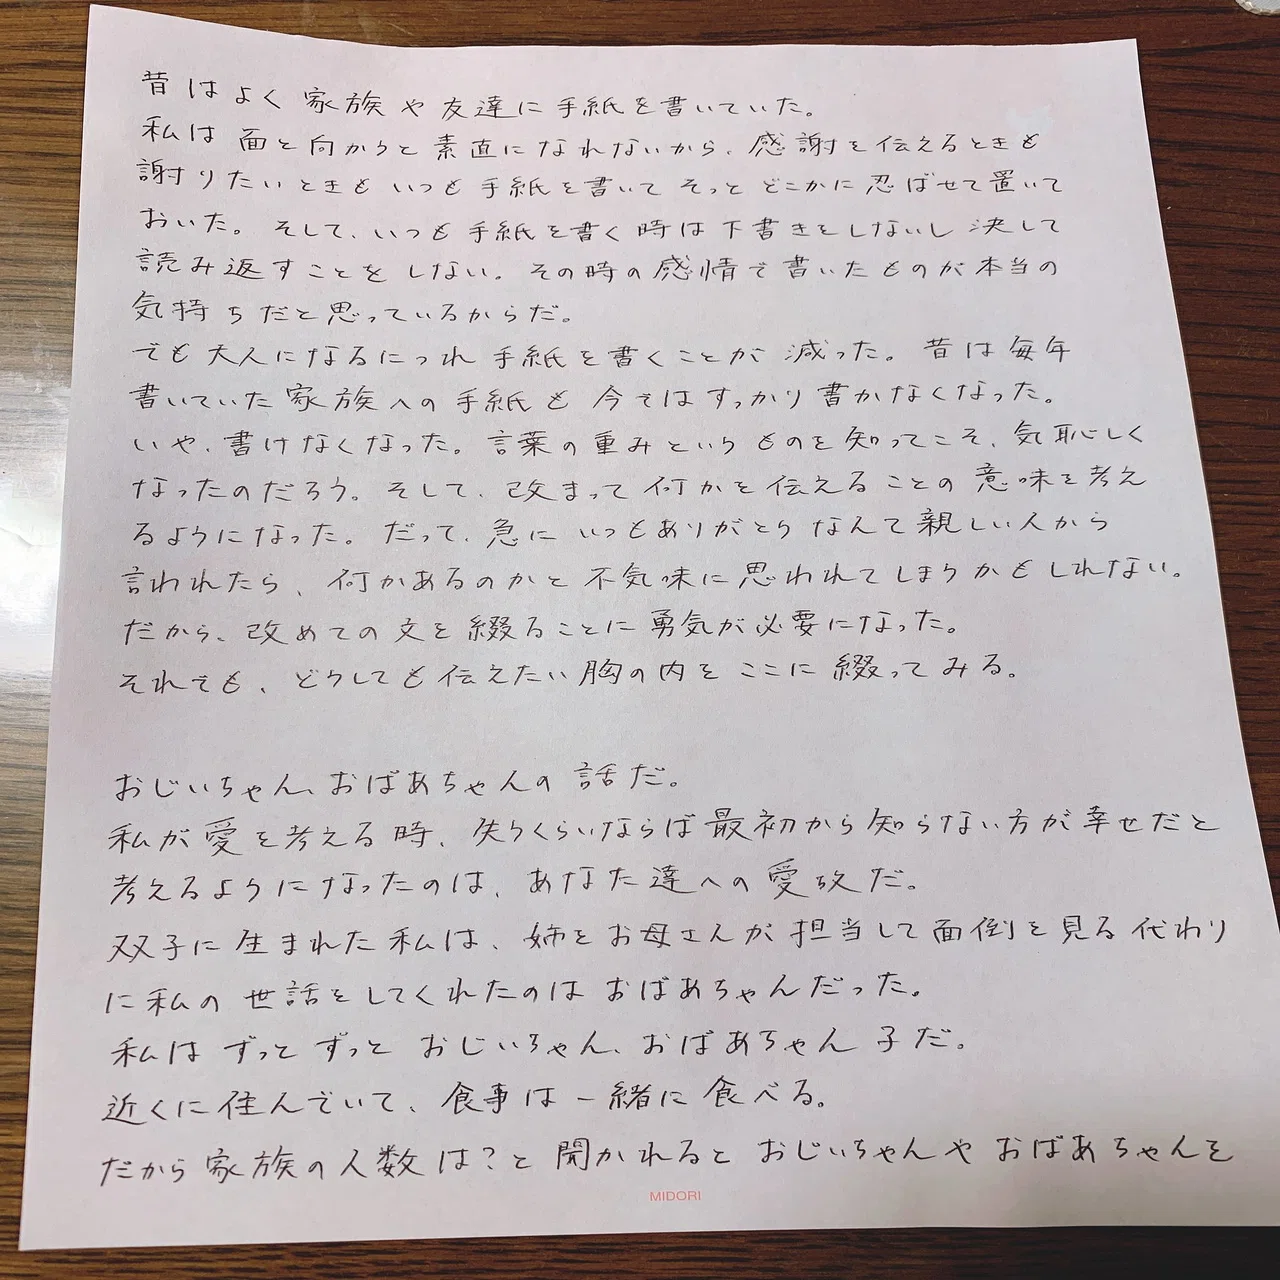 昔はよく家族や友達に手紙を書いていた。
私は面と向かうと素直になれないから、感謝を伝えるときも
謝りたいときもいつも手紙を書いてそっとどこかに忍ばせて置いて
おいた。そして、いつも手紙を書く時は下書きをしないし決して
読み返すことをしない。その時の感情で書いたものが本当の
気持ちだと思っているからだ。
でも大人になるにつれ手紙を書くことが減った。昔は毎年
書いていた家族への手紙も今ではすっかり書かなくなった。
いや、書けなくなった。言葉の重みというものを知ってこそ、気恥しく
なったのだろう。そして、改まって何かを伝えることの意味を考え
るようになった。だって、急にいつもありがとうなんて親しい人から
言われたら、何かあるのかと不気味に思われてしまうかもしれない。
だから、改めての文を綴ることに勇気が必要になった。
それでも、どうしても伝えたい胸の内をここに綴ってみる。
おじいちゃん、おばあちゃんの話だ。
私が愛を考える時、失うくらいならば最初から知らない方が幸せだと
考えるようになったのは、あなた達への愛故だ。
双子に生まれた私は、姉をお母さんが担当して面倒を見る代わり
に私の世話をしてくれたのはおばあちゃんだった。
私はずっとずっとおじいちゃん、おばあちゃん子だ。
近くに住んでいて、食事は一緒に食べる。
だから家族の人数は?と聞かれるとおじいちゃんやおばあちゃんを
MIDORI